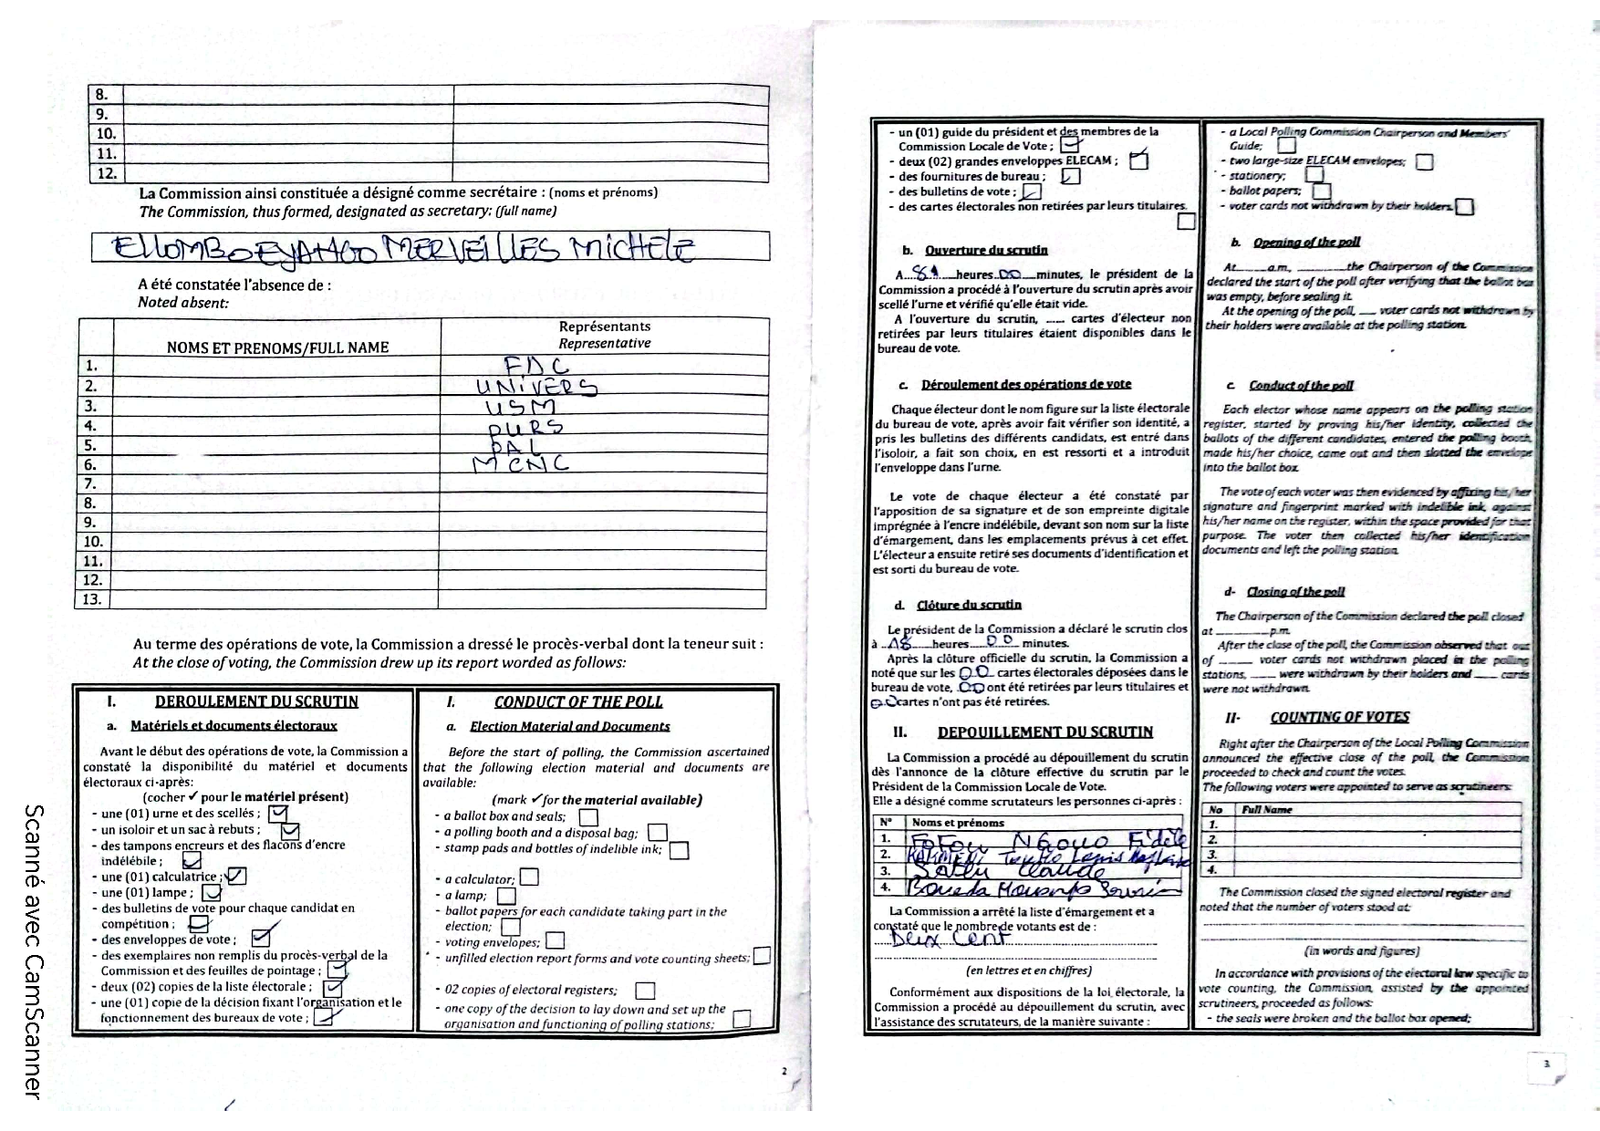 8.
9.
10.
11.
12.
La Commission ainsi constituée a désigné comme secrétaire : (noms et prénoms)
The Commission, thus formed, designated as secretary: (full name)
ELLOMBO EYANGO MERVEILLES MICHELE
A été constatée l'absence de :
Noted absent:
NOMS ET PRENOMS/FULL NAME
Représentants
Representative
1. FDC
2. UNIVERS
3. USM
4. PURS
5. PAL
6. MCNC
7.
8.
9.
10.
11.
12.
13.
Au terme des opérations de vote, la Commission a dressé le procès-verbal dont la teneur suit :
At the close of voting, the Commission drew up its report worded as follows:
I. DEROULEMENT DU SCRUTIN
a. Matériels et documents électoraux
Avant le début des opérations de vote, la Commission a
constaté la disponibilité du matériel et documents
électoraux ci-après:
(cocher ✓ pour le matériel présent)
- une (01) urne et des scellés ;
- un isoloir et un sac à rebuts ;
- des tampons encreurs et des flacons d'encre
indélébile ;
- une (01) calculatrice ;
- une (01) lampe ;
- des bulletins de vote pour chaque candidat en
compétition ;
- des enveloppes de vote ;
- des exemplaires non remplis du procès-verbal de la
Commission et des feuilles de pointage ;
- deux (02) copies de la liste électorale ;
- une (01) copie de la décision fixant l'organisation et le
fonctionnement des bureaux de vote ;
I. CONDUCT OF THE POLL
a. Election Material and Documents
Before the start of polling, the Commission ascertained
that the following election material and documents are
available:
(mark ✓ for the material available)
- a ballot box and seals;
- a polling booth and a disposal bag;
- stamp pads and bottles of indelible ink;
- a calculator;
- a lamp;
- ballot papers for each candidate taking part in the
election;
- voting envelopes;
- unfilled election report forms and vote counting sheets;
- 02 copies of electoral registers;
- one copy of the decision to lay down and set up the
organisation and functioning of polling stations;
2
Scanné avec CamScanner
- un (01) guide du président et des membres de la
Commission Locale de Vote ;
- deux (02) grandes enveloppes ELECAM ;
- des fournitures de bureau ;
- des bulletins de vote ;
- des cartes électorales non retirées par leurs titulaires.
b. Ouverture du scrutin
A heures 00 minutes, le président de la
Commission a procédé à l'ouverture du scrutin après avoir
scellé l'urne et vérifié qu'elle était vide.
A l'ouverture du scrutin, ____ cartes d'électeur non
retirées par leurs titulaires étaient disponibles dans le
bureau de vote.
c. Déroulement des opérations de vote
Chaque électeur dont le nom figure sur la liste électorale
du bureau de vote, après avoir fait vérifier son identité, a
pris les bulletins des différents candidats, est entré dans
l'isoloir, a fait son choix, en est ressorti et a introduit
l'enveloppe dans l'urne.
Le vote de chaque électeur a été constaté par
l'apposition de sa signature et de son empreinte digitale
imprégnée à l'encre indélébile, devant son nom sur la liste
d'émargement, dans les emplacements prévus à cet effet.
L'électeur a ensuite retiré ses documents d'identification et
est sorti du bureau de vote.
d. Clôture du scrutin
Le président de la Commission a déclaré le scrutin clos
à 18 heures 00 minutes.
Après la clôture officielle du scrutin, la Commission a
noté que sur les 00 cartes électorales déposées dans le
bureau de vote, 00 ont été retirées par leurs titulaires et
00 cartes n'ont pas été retirées.
II. DEPOUILLEMENT DU SCRUTIN
La Commission a procédé au dépouillement du scrutin
dès l'annonce de la clôture effective du scrutin par le
Président de la Commission Locale de Vote.
Elle a désigné comme scrutateurs les personnes ci-après :
N° Noms et prénoms
1. Fidèle
2.
3. Claude
4.
La Commission a arrêté la liste d'émargement et a
constaté que le nombre de votants est de :
Deux Cent
(en lettres et en chiffres)
Conformément aux dispositions de la loi électorale, la
Commission a procédé au dépouillement du scrutin, avec
l'assistance des scrutateurs, de la manière suivante :
- a Local Polling Commission Chairperson and Members'
Guide;
- two large-size ELECAM envelopes;
- stationery;
- ballot papers;
- voter cards not withdrawn by their holders.
b. Opening of the poll
At____a.m, ____the Chairperson of the Commission
declared the start of the poll after verifying that the ballot box
was empty, before sealing it.
At the opening of the poll, ___ voter cards not withdrawn by
their holders were available at the polling station.
c. Conduct of the poll
Each elector whose name appears on the polling station
register, started by proving his/her identity, collected the
ballots of the different candidates, entered the polling booth,
made his/her choice, came out and then slotted the envelope
into the ballot box.
The vote of each voter was then evidenced by affixing his/her
signature and fingerprint marked with indelible ink, against
his/her name on the register, within the space provided for that
purpose. The voter then collected his/her identification
documents and left the polling station.
d- Closing of the poll
The Chairperson of the Commission declared the poll closed
at ________p.m.
After the close of the poll, the Commission observed that out
of _____ voter cards not withdrawn placed in the polling
stations, ____ were withdrawn by their holders and ____ cards
were not withdrawn.
II- COUNTING OF VOTES
Right after the Chairperson of the Local Polling Commission
announced the effective close of the poll, the Commission
proceeded to check and count the votes.
The following voters were appointed to serve as scrutineers:
No Full Name
1.
2.
3.
4.
The Commission closed the signed electoral register and
noted that the number of voters stood at:
(in words and figures)
In accordance with provisions of the electoral law specific to
vote counting, the Commission, assisted by the appointed
scrutineers, proceeded as follows:
- the seals were broken and the ballot box opened;
3